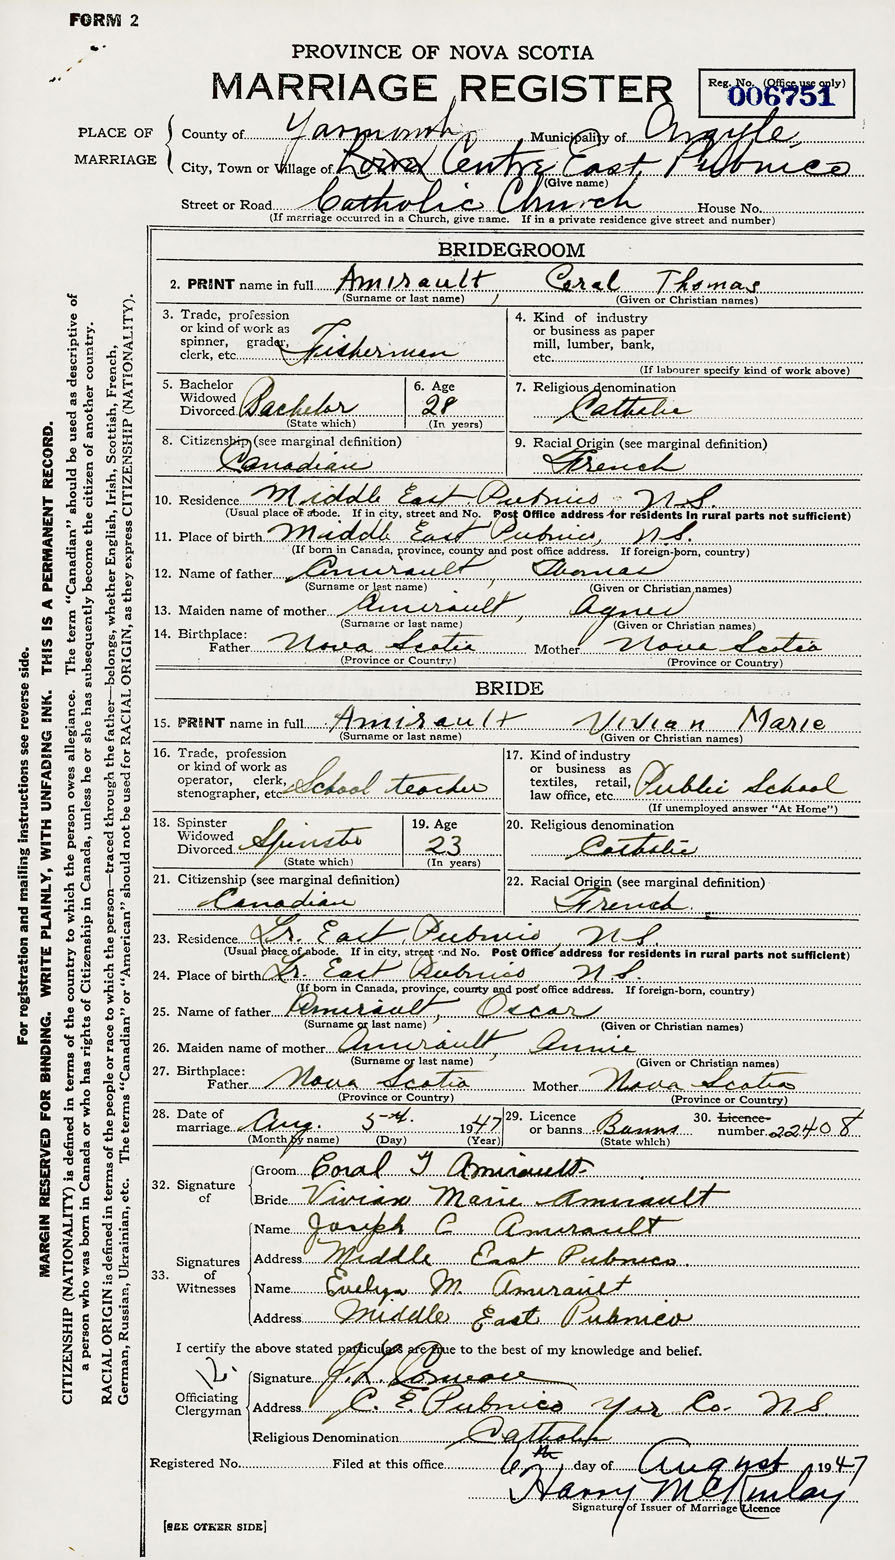 FORM 2
PROVINCE OF NOVA SCOTIA
MARRIAGE REGISTER
Reg. No. (Office use only)
006751
PLACE OF MARRIAGE
County of Yarmouth Municipality of Argyle
City, Town or Village of Centre East Pubnico
(Give name)
Street or Road Catholic Church House No.
(If marriage occurred in a Church, give name. If in a private residence give street and number)
BRIDEGROOM
2. PRINT name in full Amirault Coral Thomas
(Surname or last name) (Given or Christian names)
3. Trade, profession or kind of work as spinner, grader, clerk, etc. Fisherman
4. Kind of industry or business as paper mill, lumber, bank, etc.
(If labourer specify kind of work above)
5. Bachelor Widowed Divorced Bachelor
(State which)
6. Age 28
(In years)
7. Religious denomination
Catholic
8. Citizenship (see marginal definition)
Canadian
9. Racial Origin (see marginal definition)
French
10. Residence Middle East Pubnico N.S.
(Usual place of abode. If in city, street and No. Post Office address for residents in rural parts not sufficient)
11. Place of birth Middle East Pubnico, N.S.
(If born in Canada, province, county and post office address. If foreign-born, country)
12. Name of father Amirault, Thomas
(Surname or last name) (Given or Christian names)
13. Maiden name of mother Amirault, Agnes
(Surname or last name) (Given or Christian names)
14. Birthplace:
Father Nova Scotia Mother Nova Scotia
(Province or Country) (Province or Country)
BRIDE
15. PRINT name in full Amirault Vivian Marie
(Surname or last name) (Given or Christian names)
16. Trade, profession or kind of work as operator, clerk, stenographer, etc. School teacher
17. Kind of industry or business as textiles, retail, law office, etc. Public School
(If unemployed answer "At Home")
18. Spinster Widowed Divorced Spinster
(State which)
19. Age 23
(In years)
20. Religious denomination
Catholic
21. Citizenship (see marginal definition)
Canadian
22. Racial Origin (see marginal definition)
French
23. Residence Lr. East Pubnico, N.S.
(Usual place of abode. If in city, street and No. Post Office address for residents in rural parts not sufficient)
24. Place of birth Lr. East Pubnico N.S.
(If born in Canada, province, county and post office address. If foreign-born, country)
25. Name of father Amirault, Oscar
(Surname or last name) (Given or Christian names)
26. Maiden name of mother Amirault, Annie
(Surname or last name) (Given or Christian names)
27. Birthplace:
Father Nova Scotia Mother Nova Scotia
(Province or Country) (Province or Country)
28. Date of marriage Aug. 5th 1947
(Month by name) (Day) (Year)
29. Licence or banns Banns
(State which)
30. Licence number 22408
32. Signature of
Groom Coral T Amirault
Bride Vivian Marie Amirault
33. Signatures of Witnesses
Name Joseph C Amirault
Address Middle East Pubnico
Name Evelyn M. Amirault
Address Middle East Pubnico
I certify the above stated particulars are true to the best of my knowledge and belief.
Officiating Clergyman
Signature J.L. Comeau
Address C. E. Pubnico Yar Co. N.S.
Religious Denomination Catholic
Registered No. Filed at this office 6th day of August 1947
Harry McKinlay
Signature of Issuer of Marriage Licence
[SEE OTHER SIDE]
For registration and mailing instructions see reverse side.
MARGIN RESERVED FOR BINDING. WRITE PLAINLY, WITH UNFADING INK. THIS IS A PERMANENT RECORD.
CITIZENSHIP (NATIONALITY) is defined in terms of the country to which the person owes allegiance. The term "Canadian" should be used as descriptive of
a person who was born in Canada or who has rights of Citizenship in Canada, unless he or she has subsequently become the citizen of another country.
RACIAL ORIGIN is defined in terms of the people or race to which the person—traced through the father—belongs, whether English, Irish, Scottish, French,
German, Russian, Ukrainian, etc. The terms "Canadian" or "American" should not be used for RACIAL ORIGIN, as they express CITIZENSHIP (NATIONALITY).